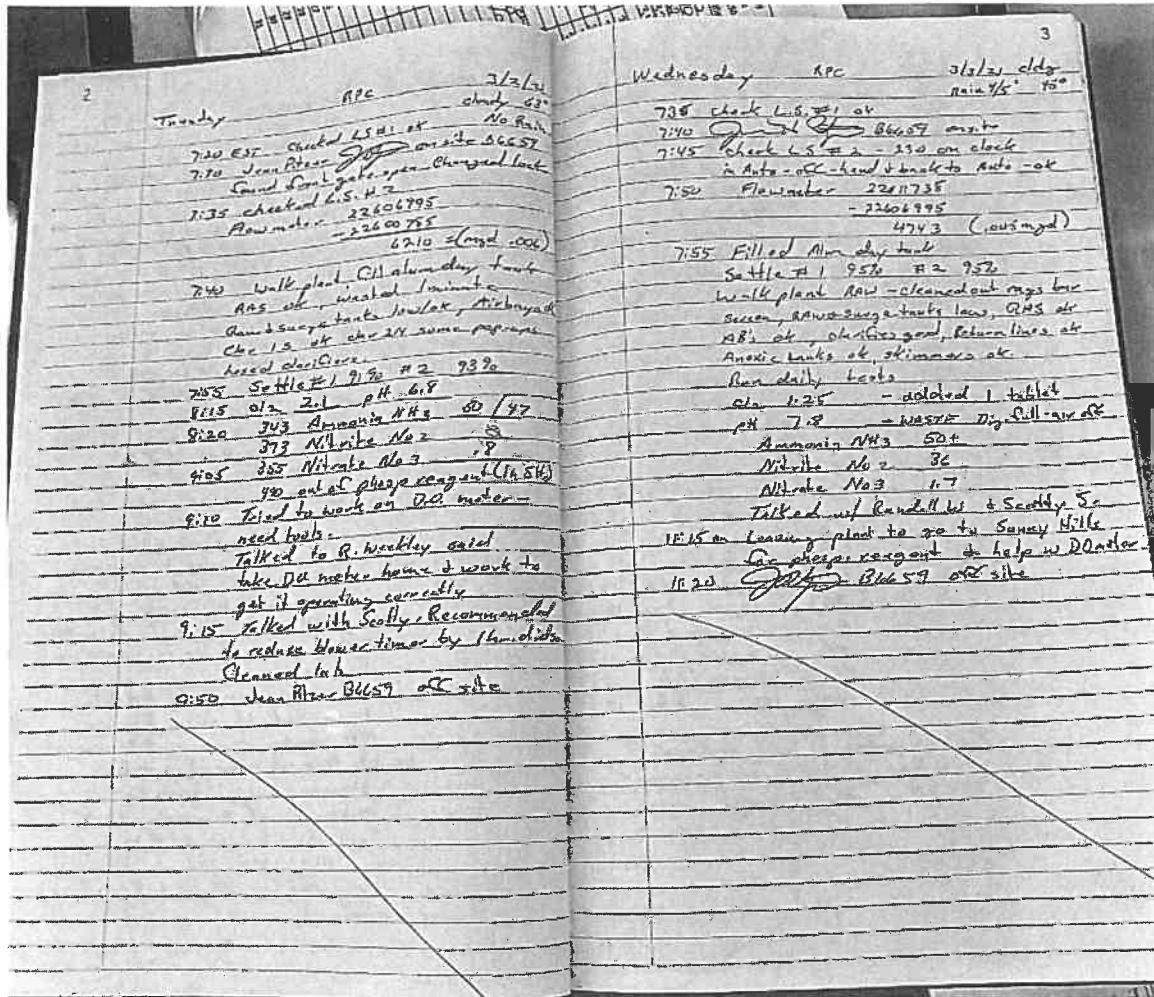 2
Tuesday RPC 3/2/21
cloudy 63°
No Rain
7:20 EST checked LS #1 ok
7:30 Jean Pitzer on site B6659
found front gate open - Changed lock
7:35 checked L.S. #2
Flowmeter 22606995
- 22600785
6210 = (mgd .006)
7:40 walk plant, fill alum day tank
RAS ok, wasted 1 minute
Raw & surge tanks low/ok, Airbays ok
Chc 1S ok chc 2N some popcorn
hosed clarifiers.
7:55 Settle #1 91% #2 93%
8:15 cl2 2.1 pH 6.8
8:20 343 Ammonia NH3 50 / 47
373 Nitrite No2
9:05 355 Nitrate No3 .8
490 out of phosp reagent (In SH)
9:10 Tried to work on D.O. meter -
need tools.
Talked to R. Weekley said
take DO meter home & work to
get it operating correctly
9:15 Talked with Scotty. Recommended
to reduse blower timer by 1 hr. did so
Cleaned lab
9:50 Jean Pitzer B6659 off site
3
Wednesday RPC 3/3/21 cldy
Rain 4/5" 45°
7:35 check L.S. #1 ok
7:40 B6659 onsite
7:45 check L.S #2 - 230 on clock
in Auto - off - hand & back to Auto - ok
7:50 Flowmeter 22611735
- 22606995
4743 (.005 mgd)
7:55 Filled Alum day tank
Settle #1 95% #2 95%
Walk plant RAW - cleaned out rags bar
screen, RAW & surge tanks low, RAS ok
AB's ok, clarifiers good, Return lines ok
Anoxic tanks ok, skimmers ok
Run daily tests
cl2 1.25 - added 1 tablet
pH 7.8 - WASTE Dig. full - air off
Ammonia NH3 50+
Nitrite No2 36
Nitrate No3 1.7
Talked w/ Randell W & Scotty S.
11:15 am Leaving plant to go to Sunny Hills
for phosp. reagent & help w DO meter
11:20 B6659 off site